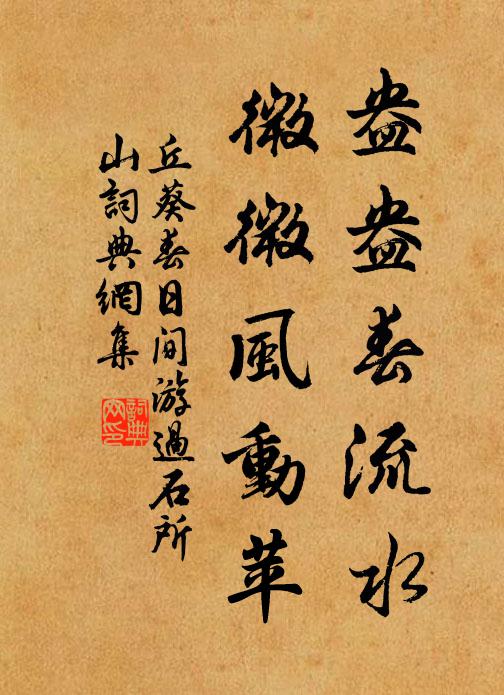 盎盎春流水
微微風動苹
丘葵春日间游過石所
山詞典網集
詞典
网印